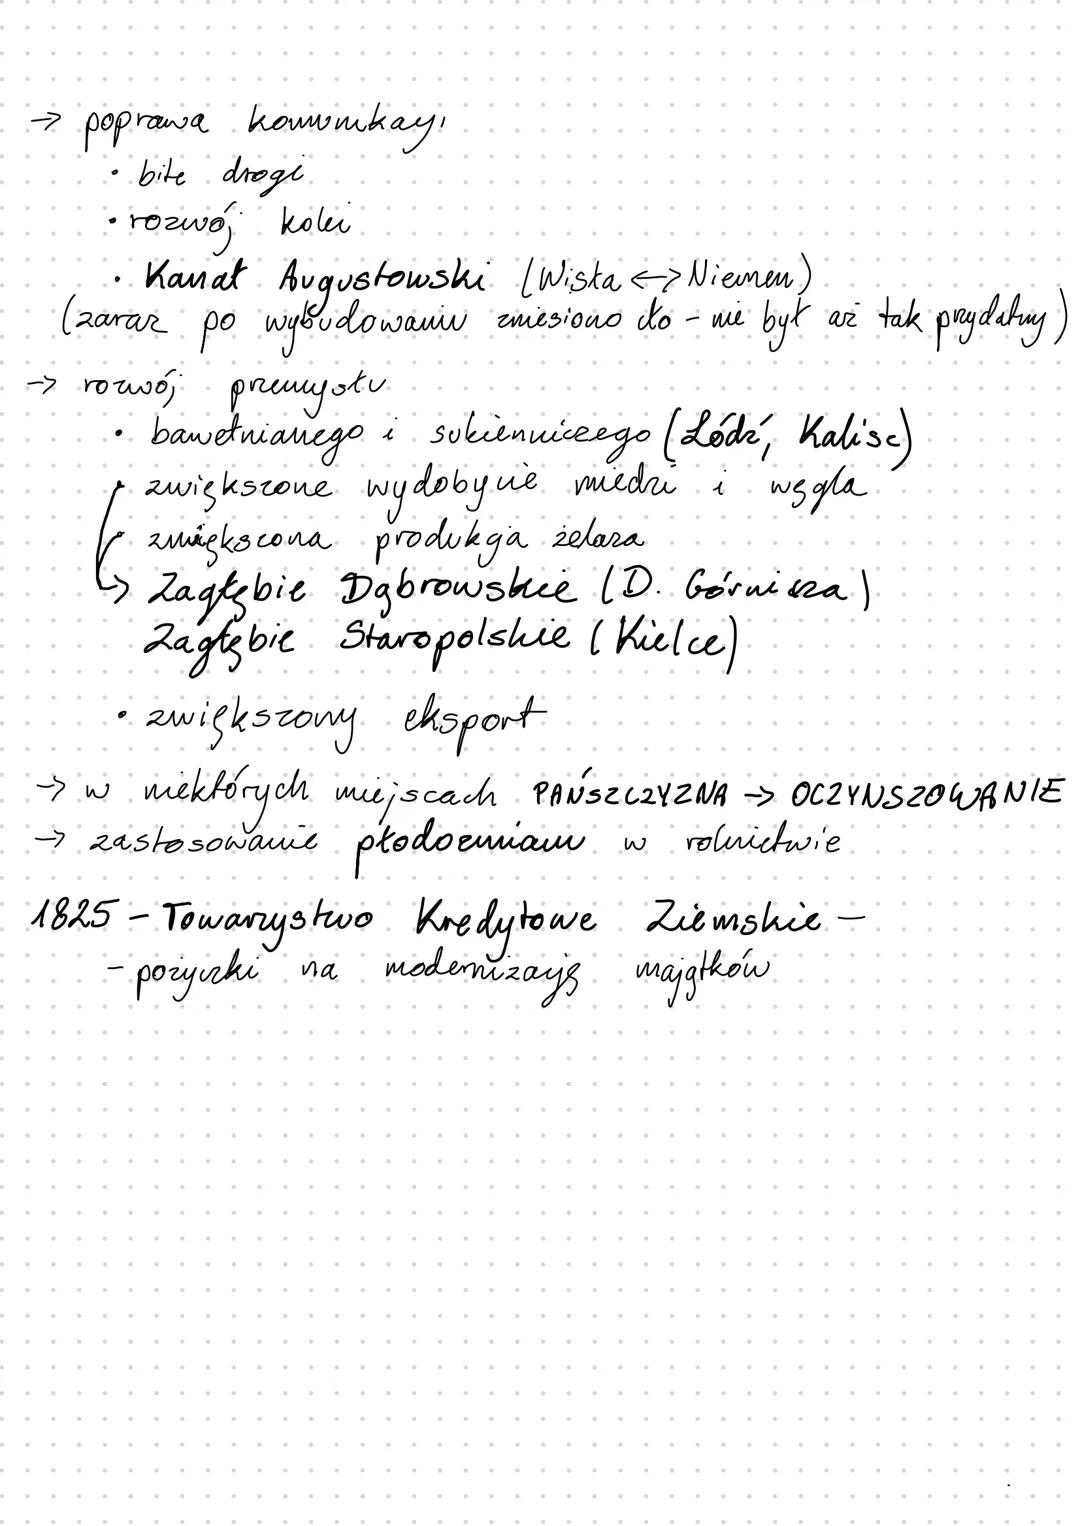 → poprawa komunikacji
• bite drogi
• rozwój kolei
• Kanał Augustowski (Wisła ↔ Niemen)
(zaraz po wybudowaniu zniesiono cło - nie był aż tak przydatny)
→ rozwój przemysłu
• bawełnianego i sukienniczego (Łódź, Kalisz)
• zwiększone wydobycie miedzi i węgla
• zwiększona produkcja żelaza
↳ Zagłębie Dąbrowskie (D. Górnicza)
Zagłębie Staropolskie (Kielce)
• zwiększony eksport
→ w niektórych miejscach PAŃSZCZYZNA → OCZYNSZOWANIE
→ zastosowanie płodozmianu w rolnictwie
1825 - Towarzystwo Kredytowe Ziemskie -
- pożyczki na modernizację majątków